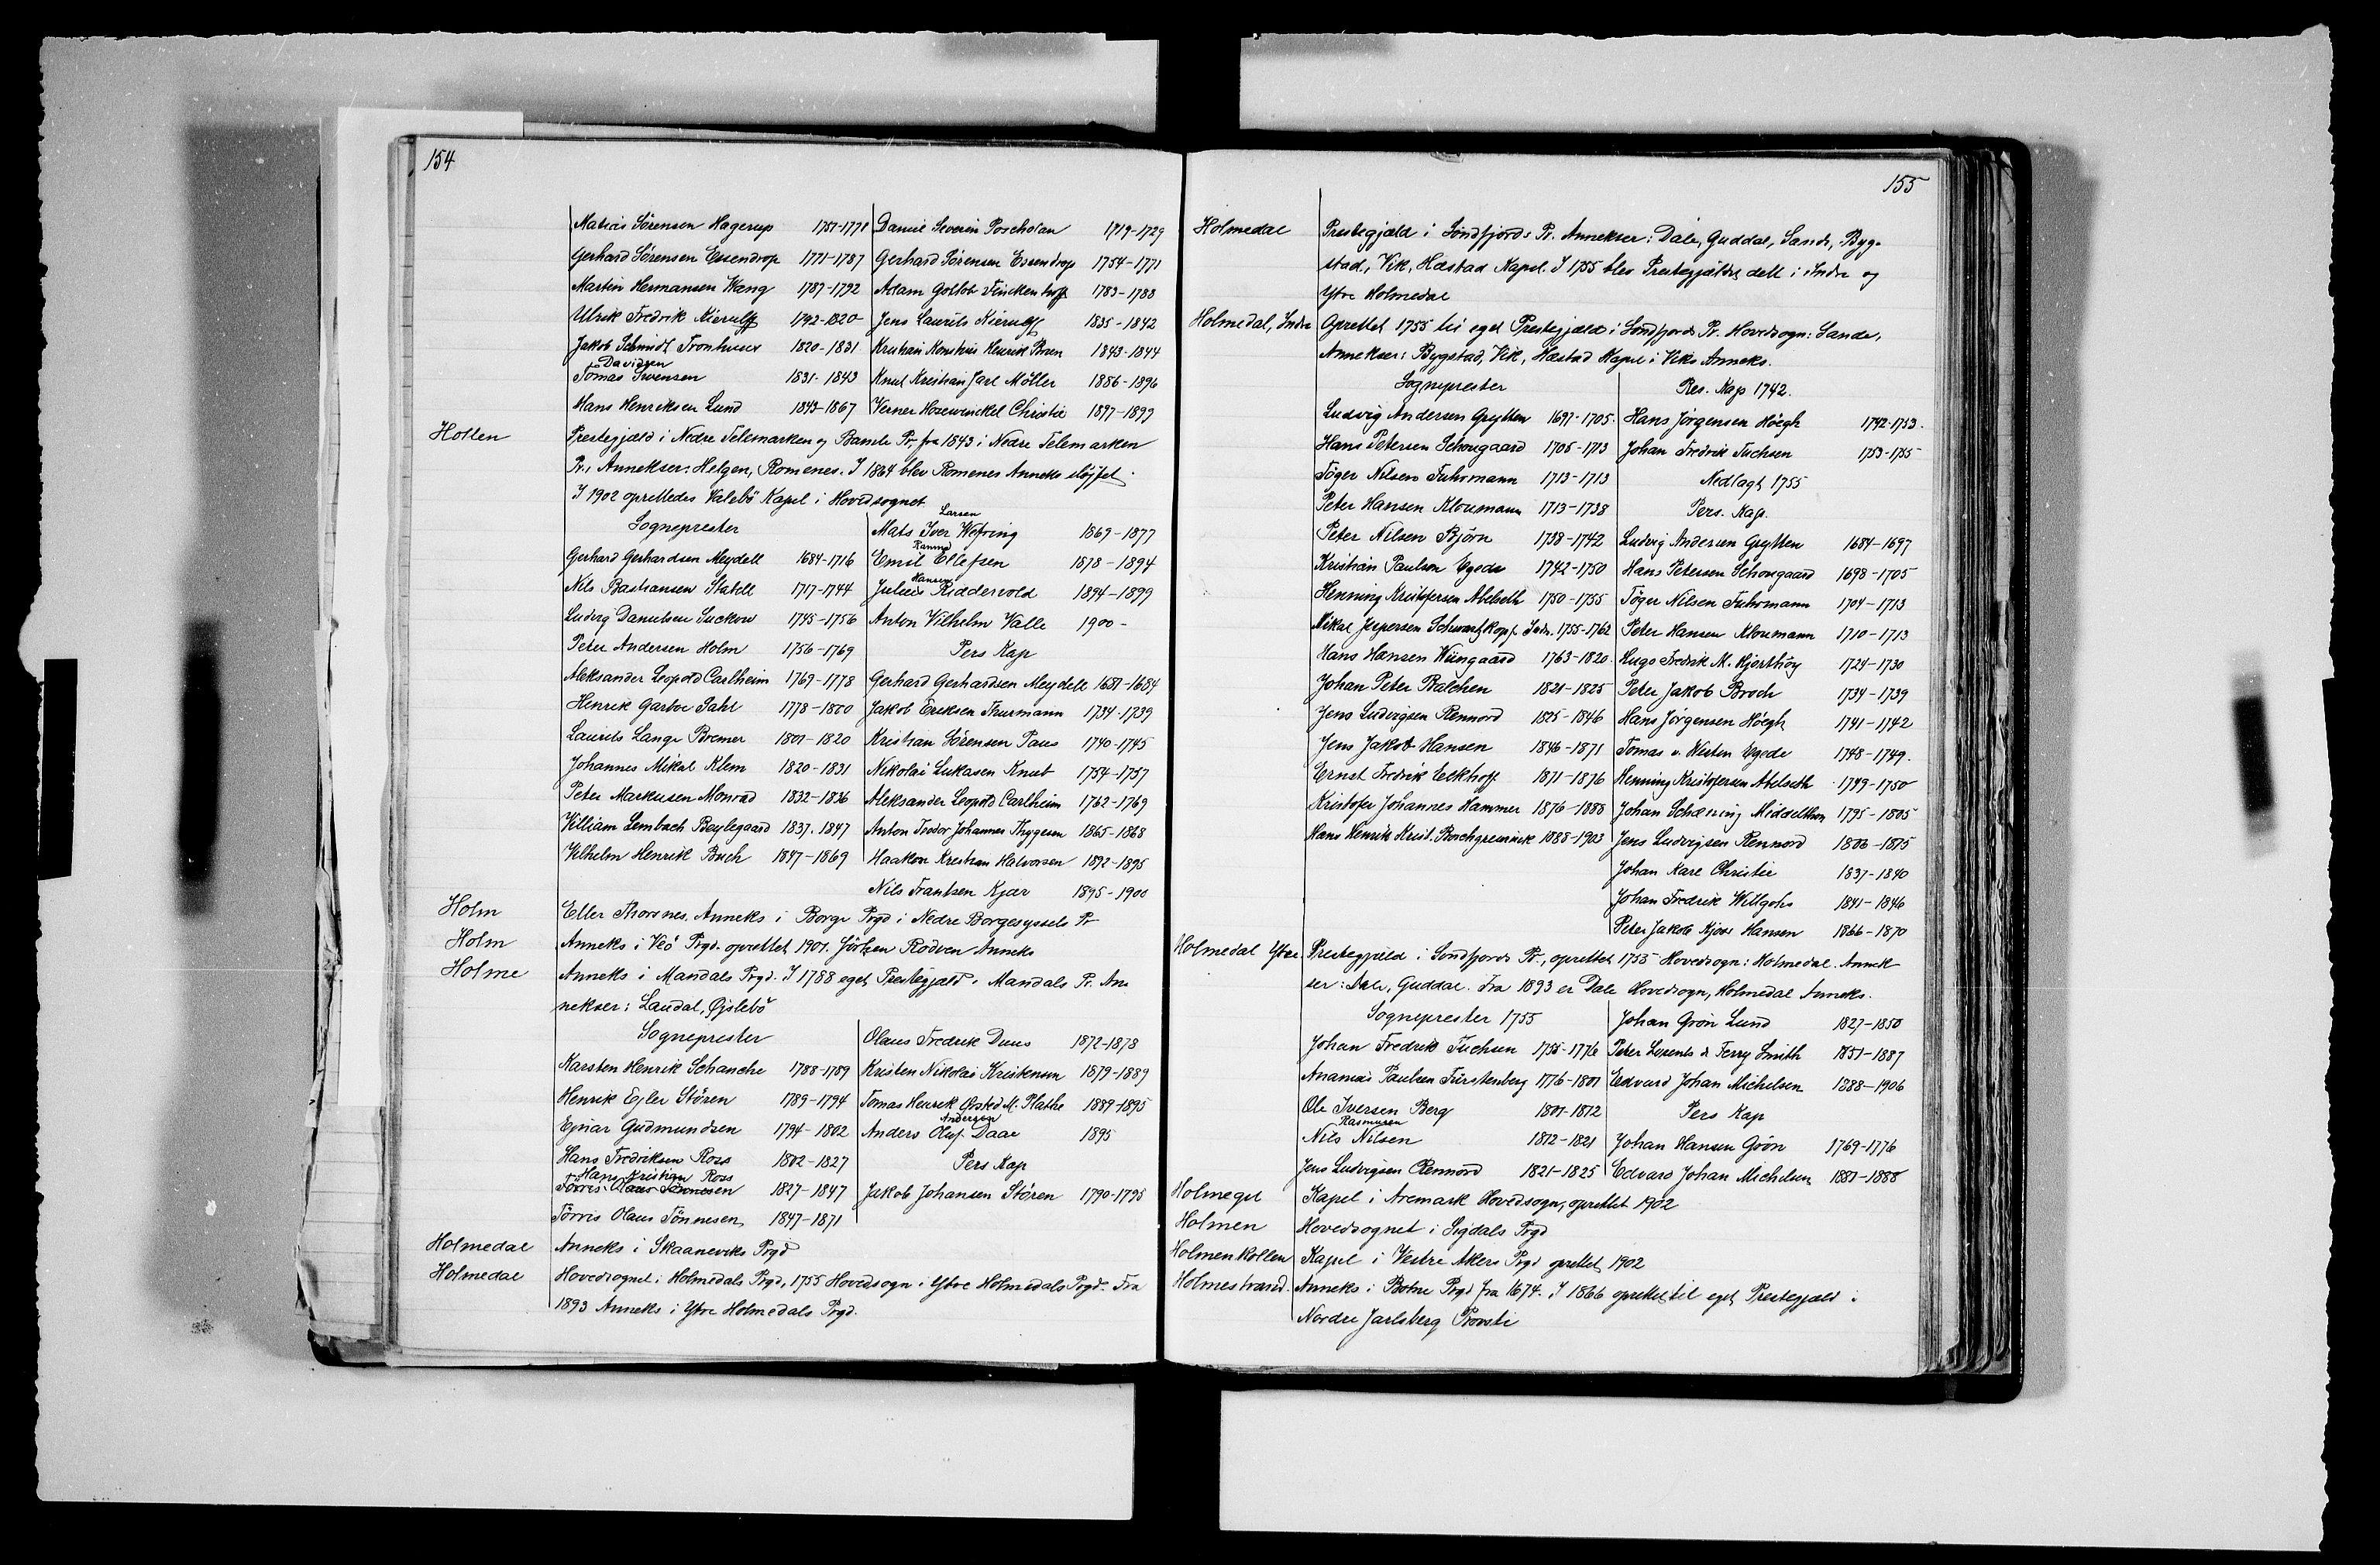 154
Matias Sörensen Hagerup 1757-1771 Daniel Severin Poscholan 1719-1729
Gerhard Sörensen Essendrop 1771-1787 Gerhard Sörensen Essendrop 1754-1771
Martin Hermansen Wang 1787-1792 Adam Gottlob Finckenhoff 1783-1788
Ulrik Fredrik Kierulff 1792-1820 Jens Laurits Kierulff 1835-1842
Jakob Schmidt Tronhuus 1820-1831 Kristian Henrik Bosen 1843-1844
Davidsen
Tomas Svensen 1831-1843 Knut Kristian Jarl Möller 1886-1896
Hans Henriksen Lund 1843-1867 Verner Hosewinckel Christie 1897-1899
Hollen Prestegjæld i Nedre Telemarken og Bamle Pr, fra 1843 i Nedre Telemarken
Pr., Annekser: Helgen, Romenes. I 1864 blev Romenes Anneks slöjfet.
I 1902 oprettedes Valebö Kapel i Hovedsognet.
Larsen
Sogneprester Mats Iver Wefring 1869-1877
Ramm
Gerhard Gerhardsen Meydell 1684-1716 Emil Ellefsen 1878-1894
Hansen
Nils Bastiansen Statell 1717-1744 Julius Riddervold 1894-1899
Ludvig Danielsen Suckow 1745-1756 Anton Vilhelm Valle 1900-
Peter Andersen Holm 1756-1769 Pers Kap
Aleksander Leopold Carlheim 1769-1778 Gerhard Gerhardsen Meydell 1681-1684
Henrik Gartve Sahl 1778-1800 Jakob Eriksen Thurmann 1734-1739
Laurits Lange Bremer 1801-1820 Kristian Sörensen Paus 1740-1745
Johannes Mikal Klem 1820-1831 Nikolai Lukasen Knub 1754-1757
Peter Markusen Monrad 1832-1836 Aleksander Leopold Carlheim 1762-1769
William Lembach Beylegaard 1837-1847 Anton Teodor Johannes Thygesen 1865-1868
Vilhelm Henrik Buch 1847-1869 Haakon Kristian Halvorsen 1892-1895
Nils Frantsen Kjær 1895-1900
Holm Eller Thorsnes. Anneks i Borge Prgd i Nedre Borgesyssels Pr
Holm Anneks i Veö Prgd. oprettet 1901. Jörtsen Rödven Anneks
Holme Anneks i Mandals Prgd. I 1788 eget Prestegjæld i Mandals Pr. An-
nekser: Laudal, Öislebö
Sogneprester Olaus Fredrik Duus 1872-1878
Karsten Henrik Schanche 1788-1789 Kristen Nikolai Kristensen 1879-1889
Henrik Ejler Stören 1789-1794 Tomas Henrik Örsted M. Plathe 1889-1895
Andersen
Ejnar Gudmundsen 1794-1802 Anders Oluf Daae 1895
Hans Fredriksen Ross 1802-1827 Pers Kap
Hans Kristian Ross
Törris Olaus Tönnesen 1827-1847 Jakob Johansen Stören 1790-1795
Törris Olaus Tönnesen 1847-1871
Holmedal Anneks i Skaaneviks Prgd
Holmedal Hovedsognet i Holmedals Prgd, 1755 Hovedsogn i Ytre Holmedals Prgd. Fra
1893 Anneks i Ytre Holmedals Prgd.
155
Holmedal Prestegjæld i Söndfjords Pr. Annekser: Dale, Guddal, Sande, Byg-
stad, Vik, Hæstad Kapel. I 1755 blev Prestegjældet delt i Indre og
Ytre Holmedal
Holmedal, Indre Oprettet 1755 til eget Prestegjæld i Söndfjords Pr. Hovedsogn: Sande,
Annekser: Bygstad, Vik, Hæstad Kapel i Viks Anneks.
Sogneprester Res. Kap 1742.
Ludvig Andersen Grytten 1697-1705. Hans Jörgensen Höegh 1742-1753.
Hans Petersen Schougaard 1705-1713 Johan Fredrik Tuchsen 1753-1755
Töger Nilsen Fuhrmann 1713-1713 Nedlagt 1755
Peter Hansen Kloumann 1713-1738 Pers. Kap.
Peter Nilsen Björn 1738-1742 Ludvig Andersen Grytten 1684-1697
Kristian Paulson Egede 1742-1750 Hans Petersen Schougaard 1698-1705
Henning Kristofersen Abelseth 1750-1755 Töger Nilsen Fuhrmann 1704-1713
Mikal Jespersen Schwartzkopf. Indr. 1755-1762 Peter Hansen Kloumann 1710-1713
Hans Hansen Wiingaard 1763-1820. Hugo Fredrik M. Hjorthöy 1724-1730
Johan Peter Balchen 1821-1825 Peter Jakob Broch 1734-1739
Jens Ludvigsen Rennord 1825-1846 Hans Jörgensen Höegh 1741-1742
Jens Jakob Hansen 1846-1871 Tomas v. Westen Egede 1748-1749.
Ernst Fredrik Eckhoff 1871-1876 Henning Kristofersen Abelseth 1749-1750
Kristofer Johannes Hammer 1876-1888 Johan Schæning Middelthon 1795-1805
Hans Henrik Krist. Borchgrevinck 1888-1903 Jens Ludvigsen Rennord 1806-1815
Johan Karl Christie 1837-1840
Johan Fredrik Willgohs 1841-1846
Peter Jakob Kjær Hansen 1866-1870
Holmedal Ytre Prestegjæld i Söndfjords Pr., oprettet 1755 Hovedsogn: Holmedal. Annek-
ser: Dale, Guddal. Fra 1893 er Dale Hovedsogn, Holmedal Anneks.
Sogneprester 1755 Johan Grön Lund 1827-1850
Johan Fredrik Tuchsen 1755-1776 Peter Lorents d Ferry Smith 1851-1887
Ananias Paulsen Fürstenberg 1776-1801 Edvard Johan Michelsen 1888-1906
Ole Iversen Berg 1801-1812 Pers Kap
Rasmusen
Nils Nilsen 1812-1821 Johan Hansen Grön 1769-1776
Jens Ludvigsen Rennord 1821-1825 Edvard Johan Michelsen 1881-1888
Holmegil Kapel i Aremark Hovedsogn, oprettet 1902
Holmen Hovedsognet i Sigdals Prgd
Holmenkollen Kapel i Vestre Akers Prgd oprettet 1902
Holmestrand. Anneks i Botne Prgd fra 1674. I 1866 oprettet til eget Prestegjæld i
Nordre Jarlsberg Provsti